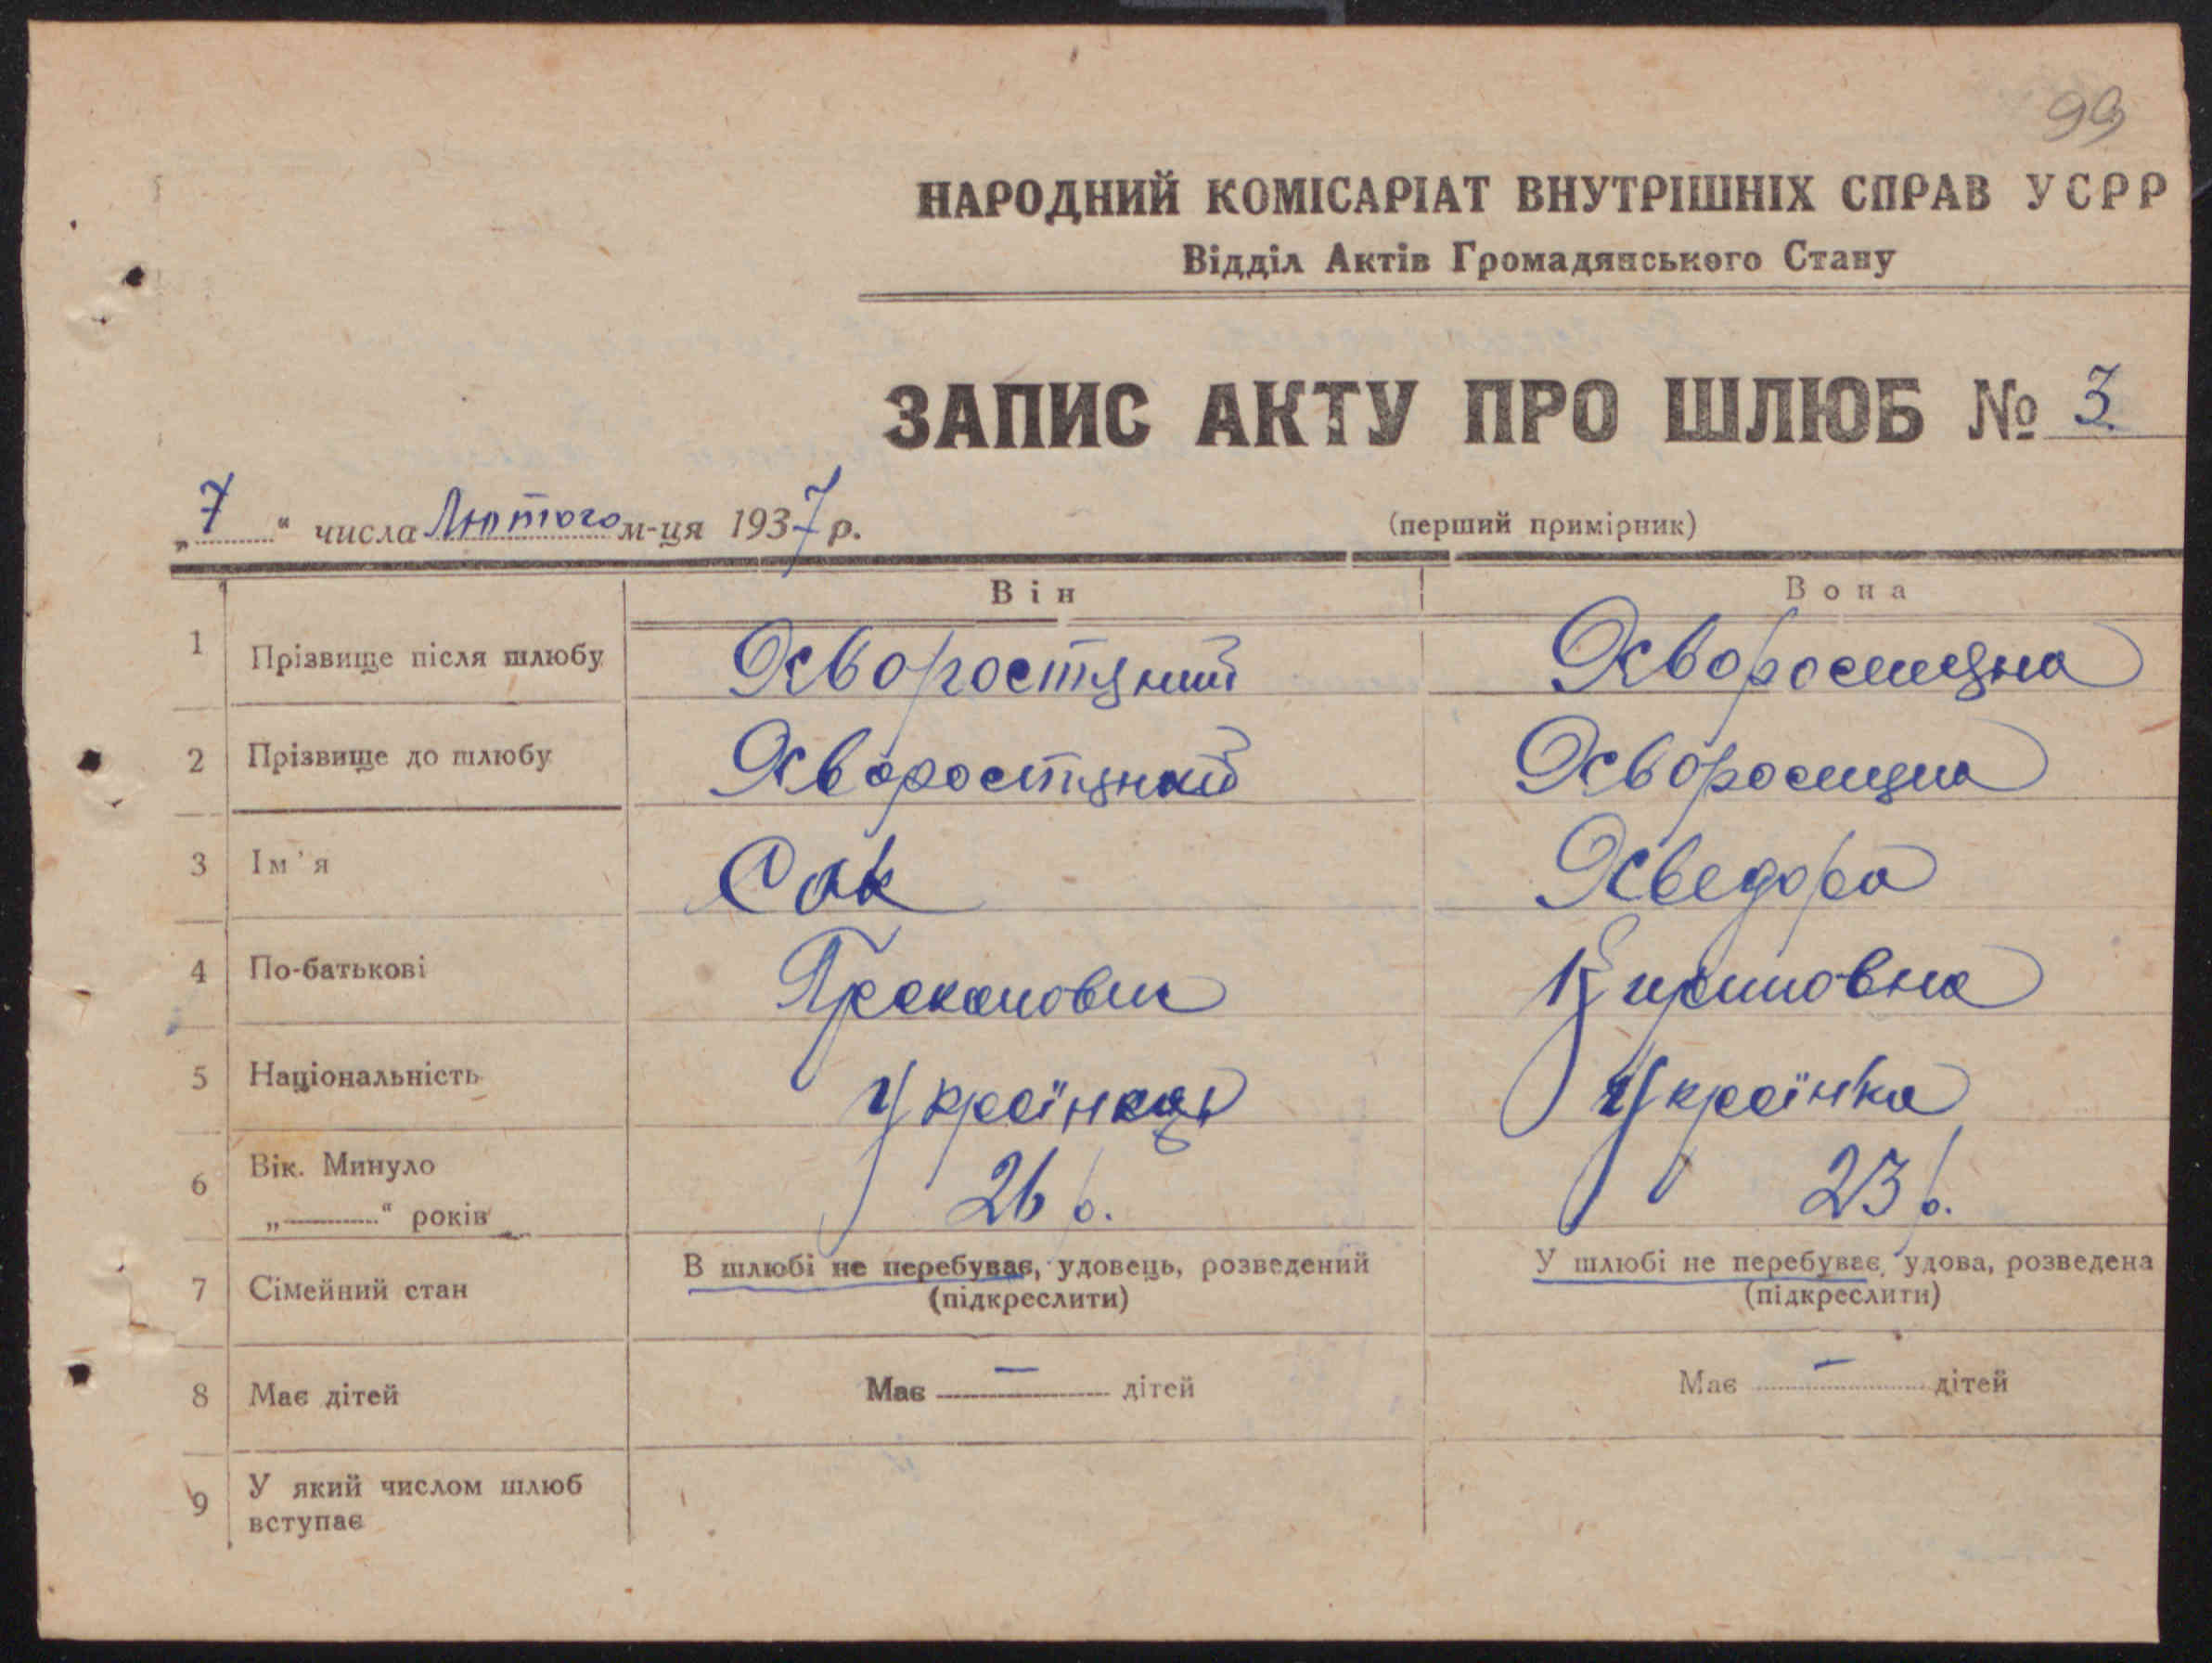 99
НАРОДНИЙ КОМІСАРІАТ ВНУТРІШНІХ СПРАВ УСРР
Відділ Актів Громадянського Стану
ЗАПИС АКТУ ПРО ШЛЮБ № 3.
„7“ числа Лютого м-ця 1937 р.
(перший примірник)
Він Вона
1 Прізвище після шлюбу Хворостяний Хворостяна
2 Прізвище до шлюбу Хворостяний Хворостяна
3 Ім'я Сак Хведора
4 По-батькові
5 Національність Українець Українка
6 Вік. Минуло
„ “ років 26 р. 23 р.
7 Сімейний стан В шлюбі не перебуває, удовець, розведений У шлюбі не перебуває, удова, розведена
(підкреслити) (підкреслити)
8 Має дітей Має — дітей Має — дітей
9 У який числом шлюб
вступає